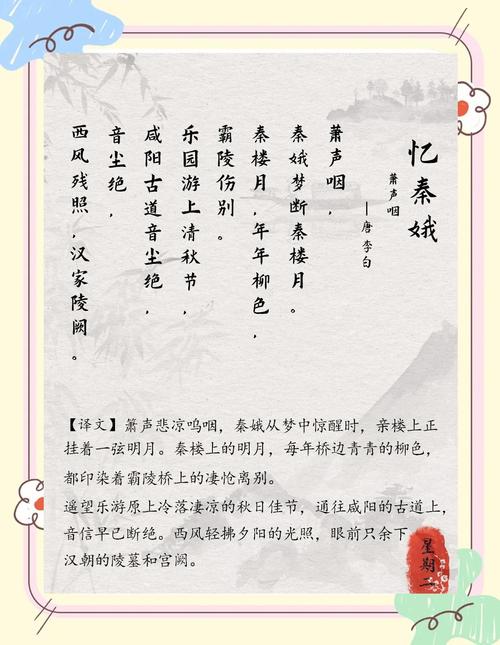 忆秦娥
箫声咽
—唐 李白
箫声咽，
秦娥梦断秦楼月。
秦楼月，年年柳色，
霸陵伤别。
乐园游上清秋节，
咸阳古道音尘绝，
音尘绝，
西风残照，汉家陵阙。
【译文】箫声悲凉呜咽，秦娥从梦中惊醒时，亲楼上正
挂着一弦明月。秦楼上的明月，每年桥边青青的柳色，
都印染着霸陵桥上的凄怆离别。
遥望乐游原上冷落凄凉的秋日佳节，通往咸阳的古道上，
音信早已断绝。西风轻拂夕阳的光照，眼前只余下
汉朝的陵墓和宫阙。
星期二